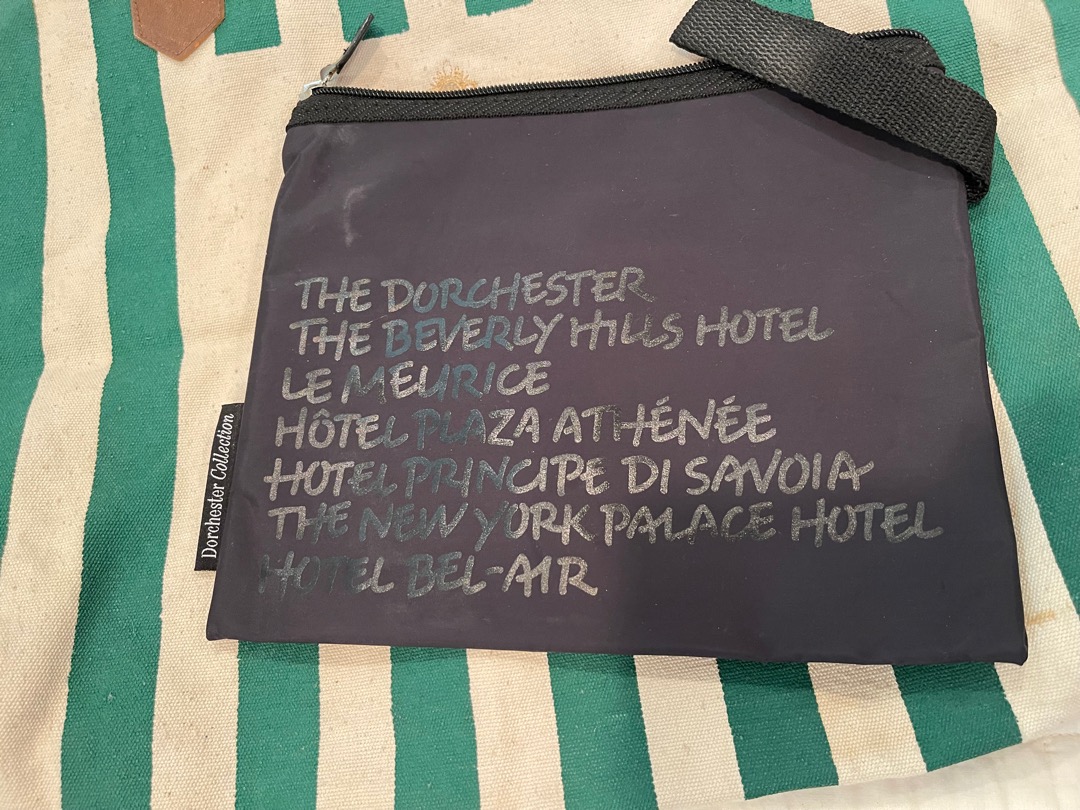 THE DORCHESTER
THE BEVERLY HILLS HOTEL
LE MEURICE
HÔTEL PLAZA ATHÉNÉE
HOTEL PRINCIPE DI SAVOIA
THE NEW YORK PALACE HOTEL
HOTEL BEL-AIR
Dorchester Collection